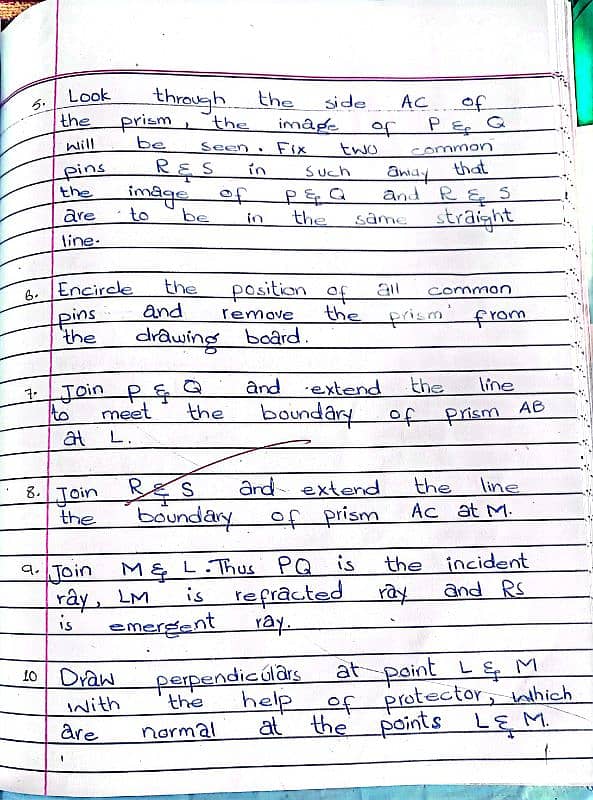 5. Look through the side AC of
the prism, the image of P & Q
will be seen. Fix two common
pins R & S in such away that
the image of P & Q and R & S
are to be in the same straight
line.
6. Encircle the position of all common
pins and remove the prism from
the drawing board.
7. Join P & Q and extend the line
to meet the boundary of prism AB
at L.
8. Join R & S and extend the line
the boundary of prism AC at M.
9. Join M & L. Thus PQ is the incident
ray, LM is refracted ray and RS
is emergent ray.
10 Draw perpendiculars at point L & M
with the help of protector, which
are normal at the points L & M.